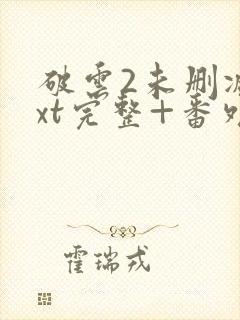 破雲2未删减
xt完整+番外
霍瑞戎